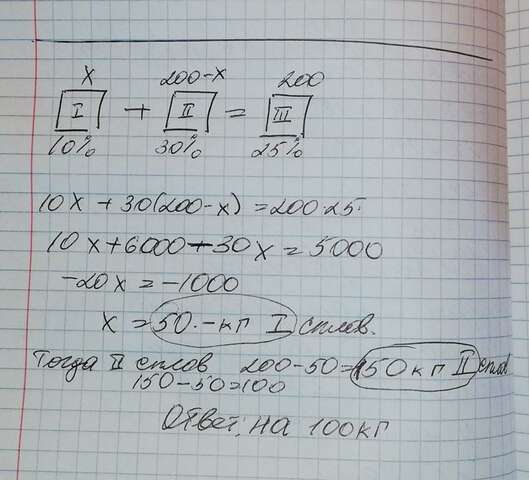 x 200-x 200
I + II = III
10% 30% 25%
10x + 30(200-x) = 200·25·
10x+6000-30x=5000
-20x = -1000
x = 50.-кг I сплав.
Тогда II сплов 200-50=150кг II спла
150-50=100
Ответ: на 100кг